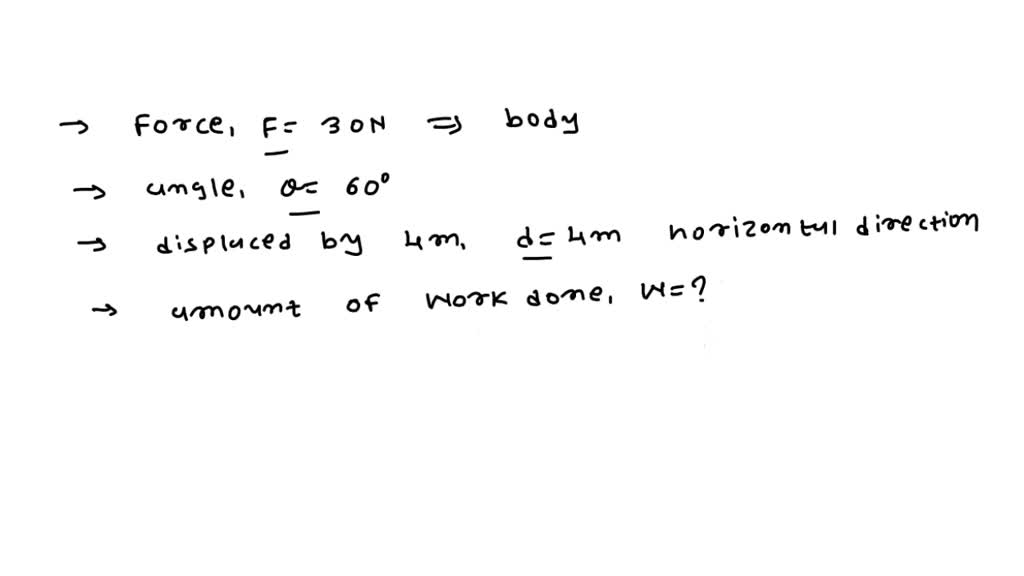 → Force, F = 30N ⇒ body
→ angle, θ = 60°
→ displaced by 4m, d = 4m horizontal direction
→ amount of work done, W = ?